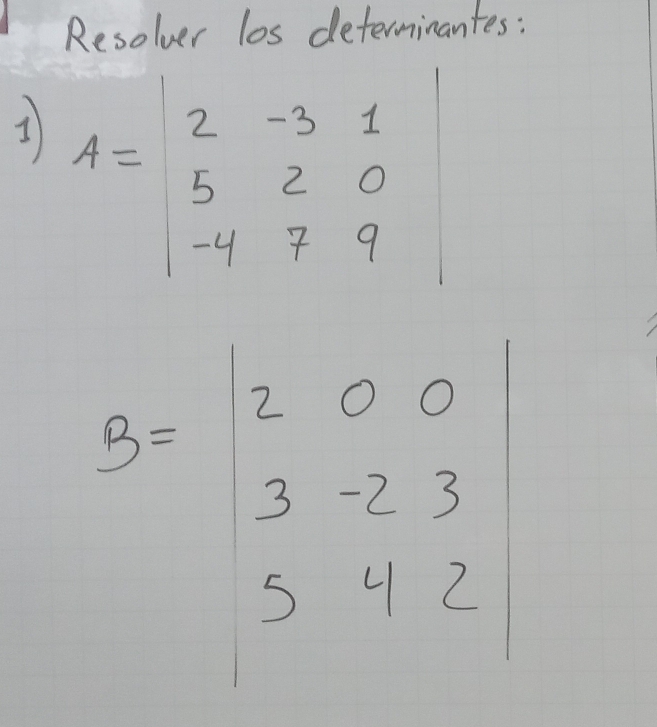 Resolver los determinantes:
1) A = | 2 -3 1 |
| 5 2 0 |
| -4 7 9 |
B = | 2 0 0 |
| 3 -2 3 |
| 5 4 2 |